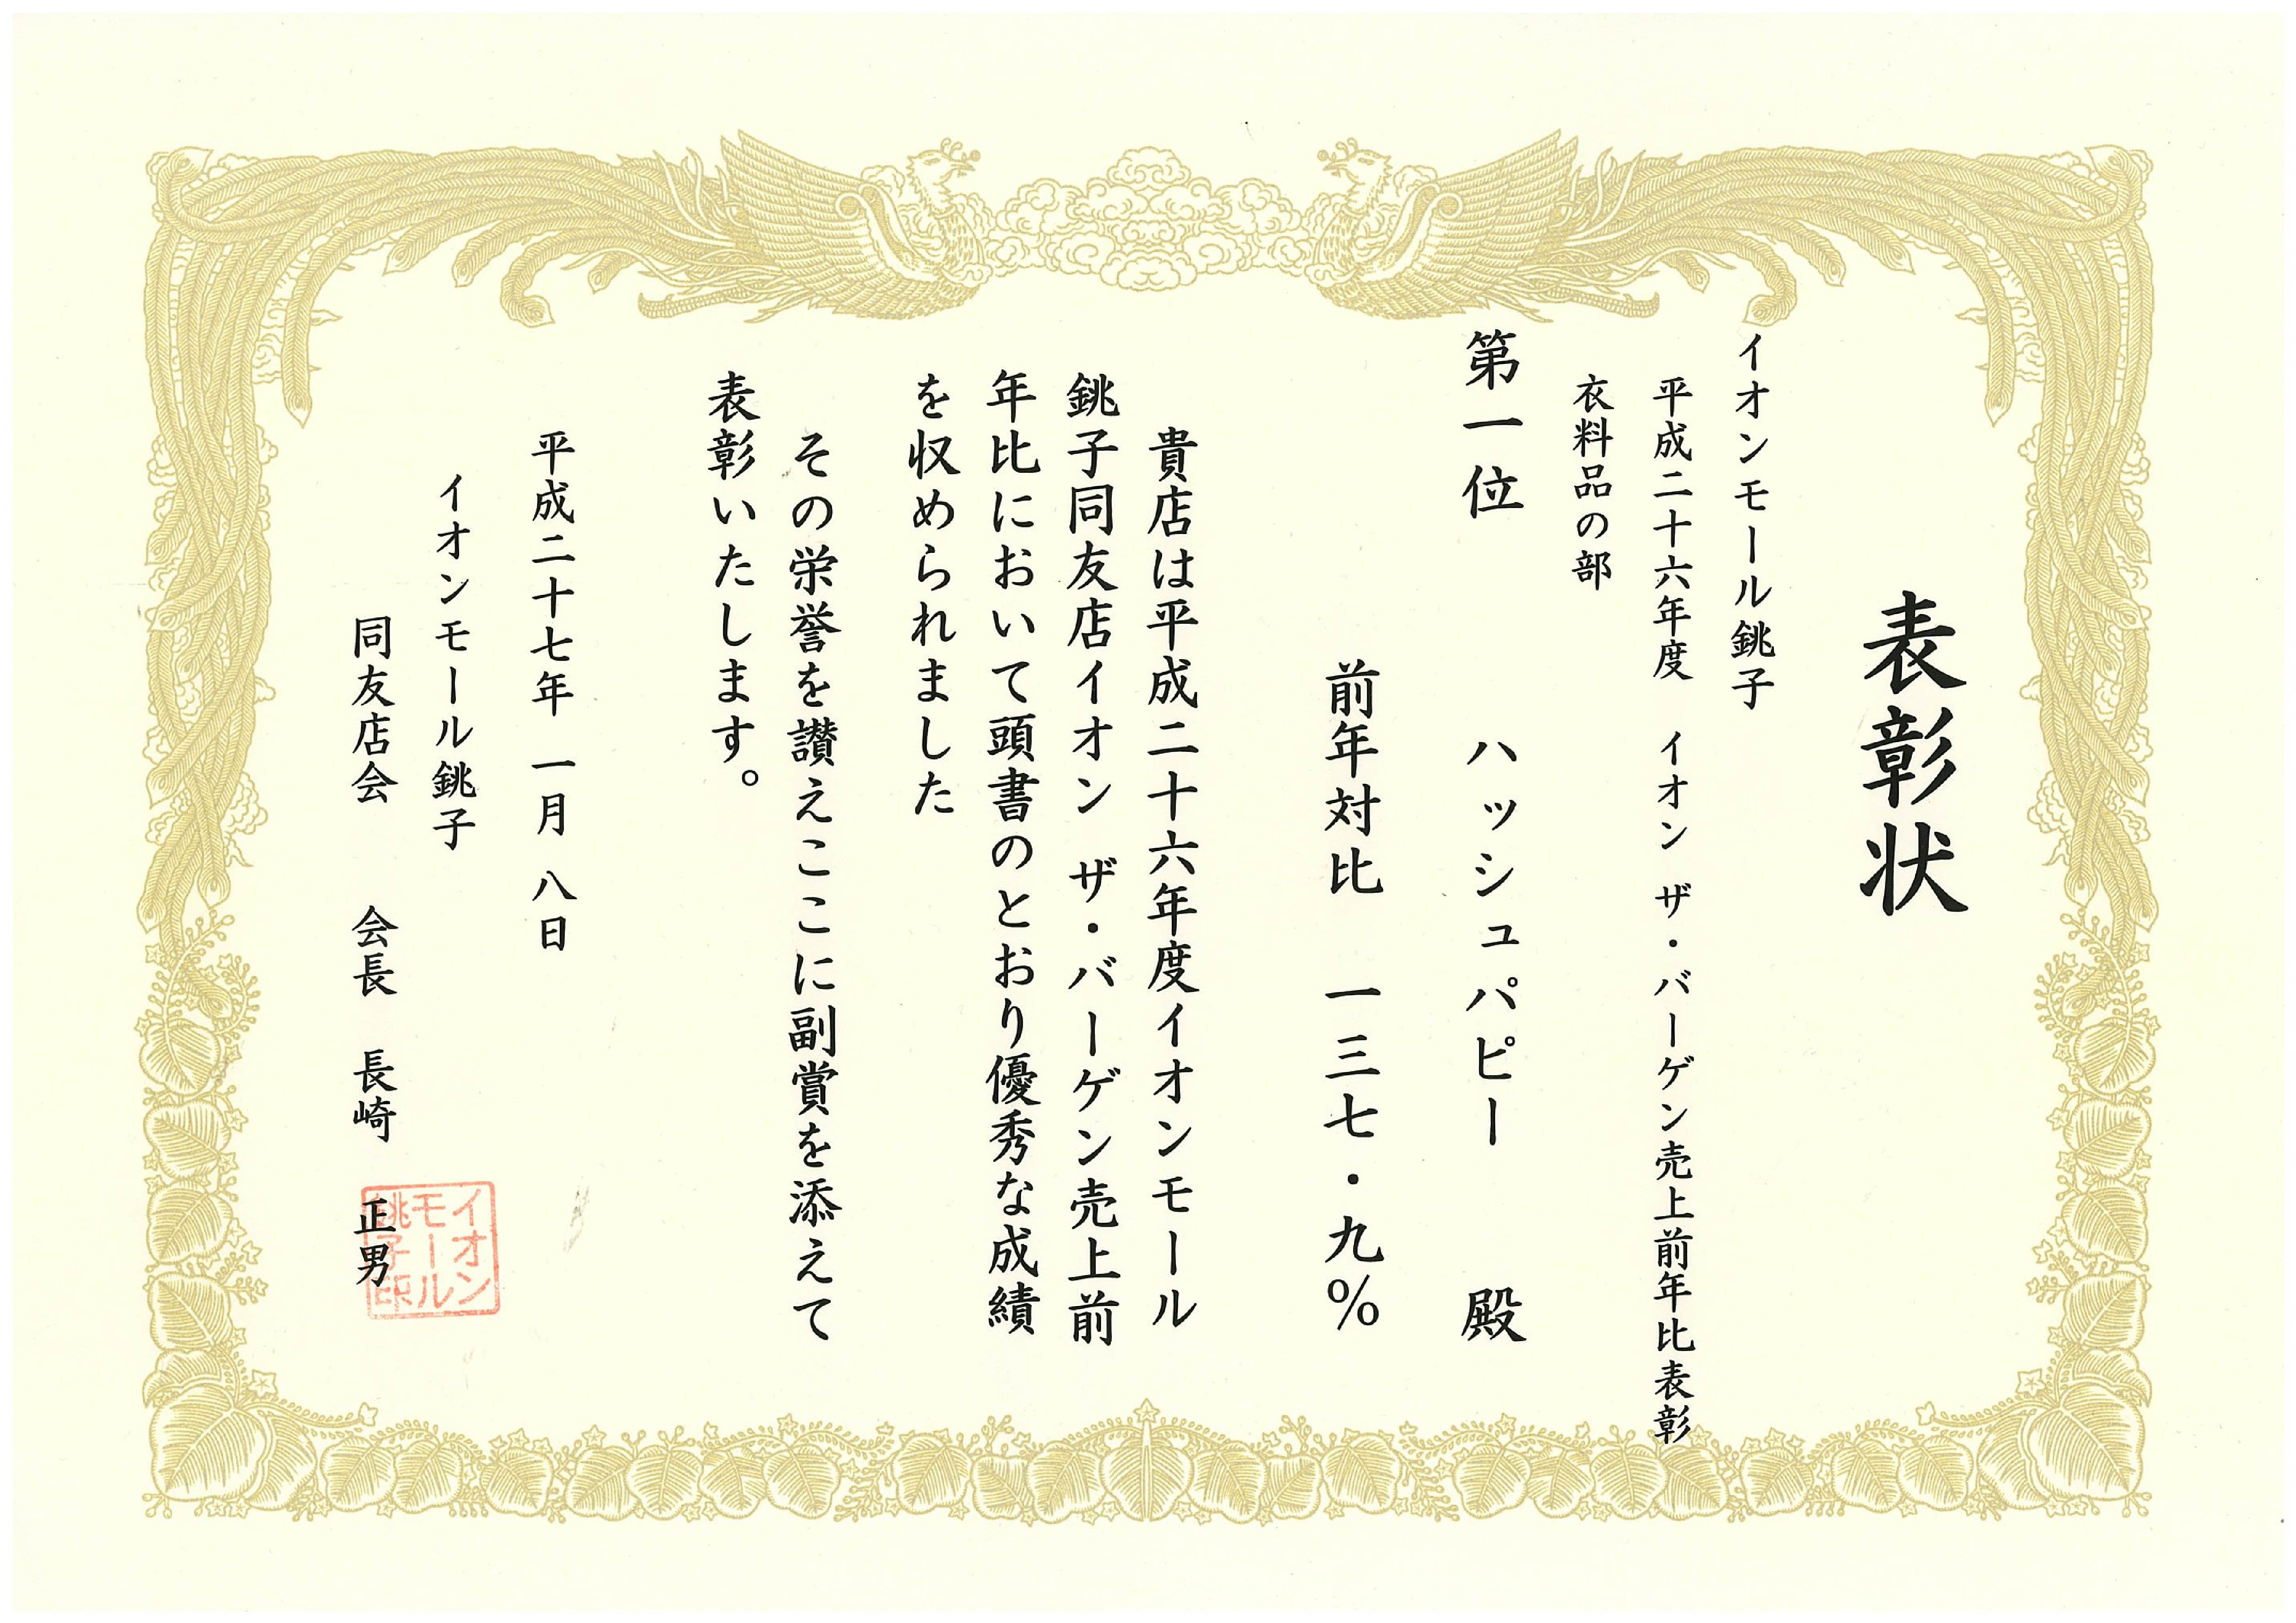 表彰状
イオンモール銚子
平成二十六年度 イオン ザ・バーゲン売上前年比表彰
衣料品の部
第一位 ハッシュパピー 殿
前年対比 一三七・九％
貴店は平成二十六年度イオンモール
銚子同友店イオン ザ・バーゲン売上前
年比において頭書のとおり優秀な成績
を収められました
その栄誉を讃えここに副賞を添えて
表彰いたします。
平成二十七年 一月 八日
イオンモール銚子
同友店会 会長 長崎 正男
イオン
モール
銚子印